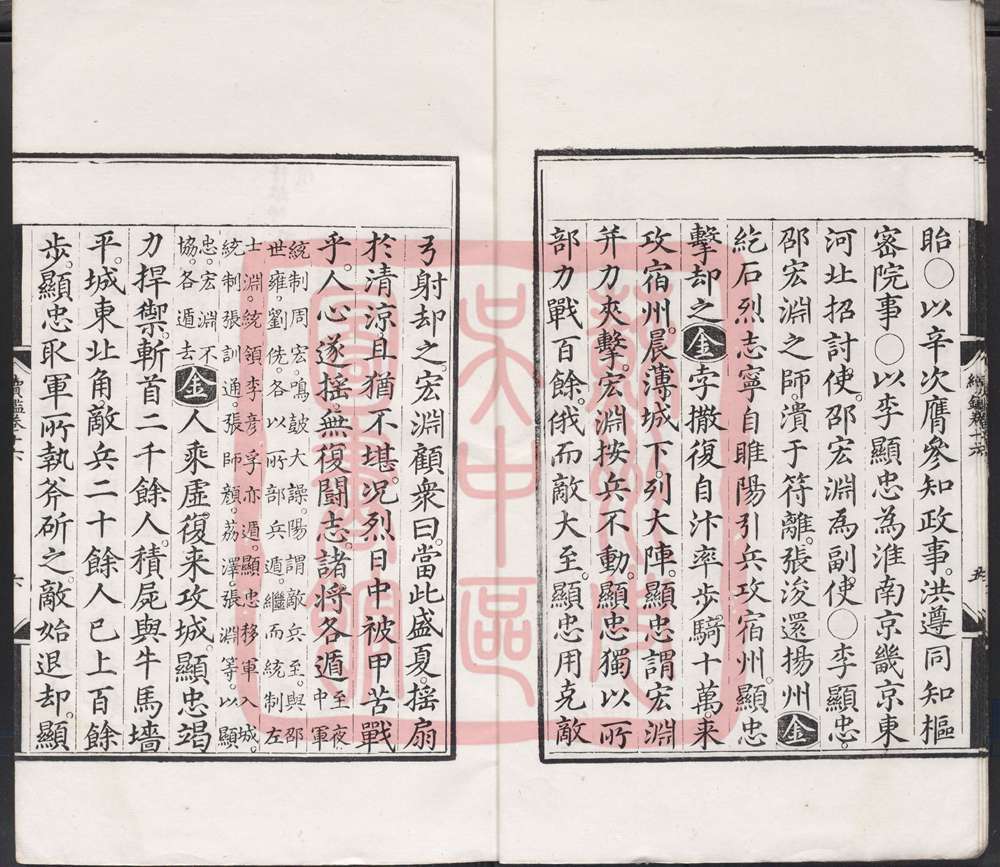 眙○以辛次膺參知政事。洪遵同知樞
密院事○以李顯忠為淮南京畿京東
河北招討使。邵宏淵為副使○李顯忠。
邵宏淵之師。潰于符離。張浚還揚州金
紇石烈志寧自睢陽引兵攻宿州。顯忠
擊却之金孛撒復自汴率步騎十萬来
攻宿州。晨薄城下。列大陣。顯忠謂宏淵
并力夾擊。宏淵按兵不動。顯忠獨以所
部力戰百餘。俄而敵大至。顯忠用克敵
弓射却之。宏淵顧衆曰。當此盛夏。摇扇
於清涼。且猶不堪。况烈日中被甲苦戰
乎。人心遂摇。無復鬪志。諸將各遁至夜中軍
統制周宏。鳴鼓大譟。陽謂敵兵至。與邵
世雍。劉侁。各以所部兵遁。繼而統制左
士淵。統領李彦孚亦遁。顯忠移軍入城。
統制張訓通。張師顔。荔澤。張淵等。以顯
忠。宏淵不
協。各遁去金人乘虛復来攻城。顯忠竭
力捍禦。斬首二千餘人。積屍與牛馬墻
平。城東北角敵兵二十餘人已上百餘
步。顯忠取軍所執斧斫之。敵始退却。顯
五
六